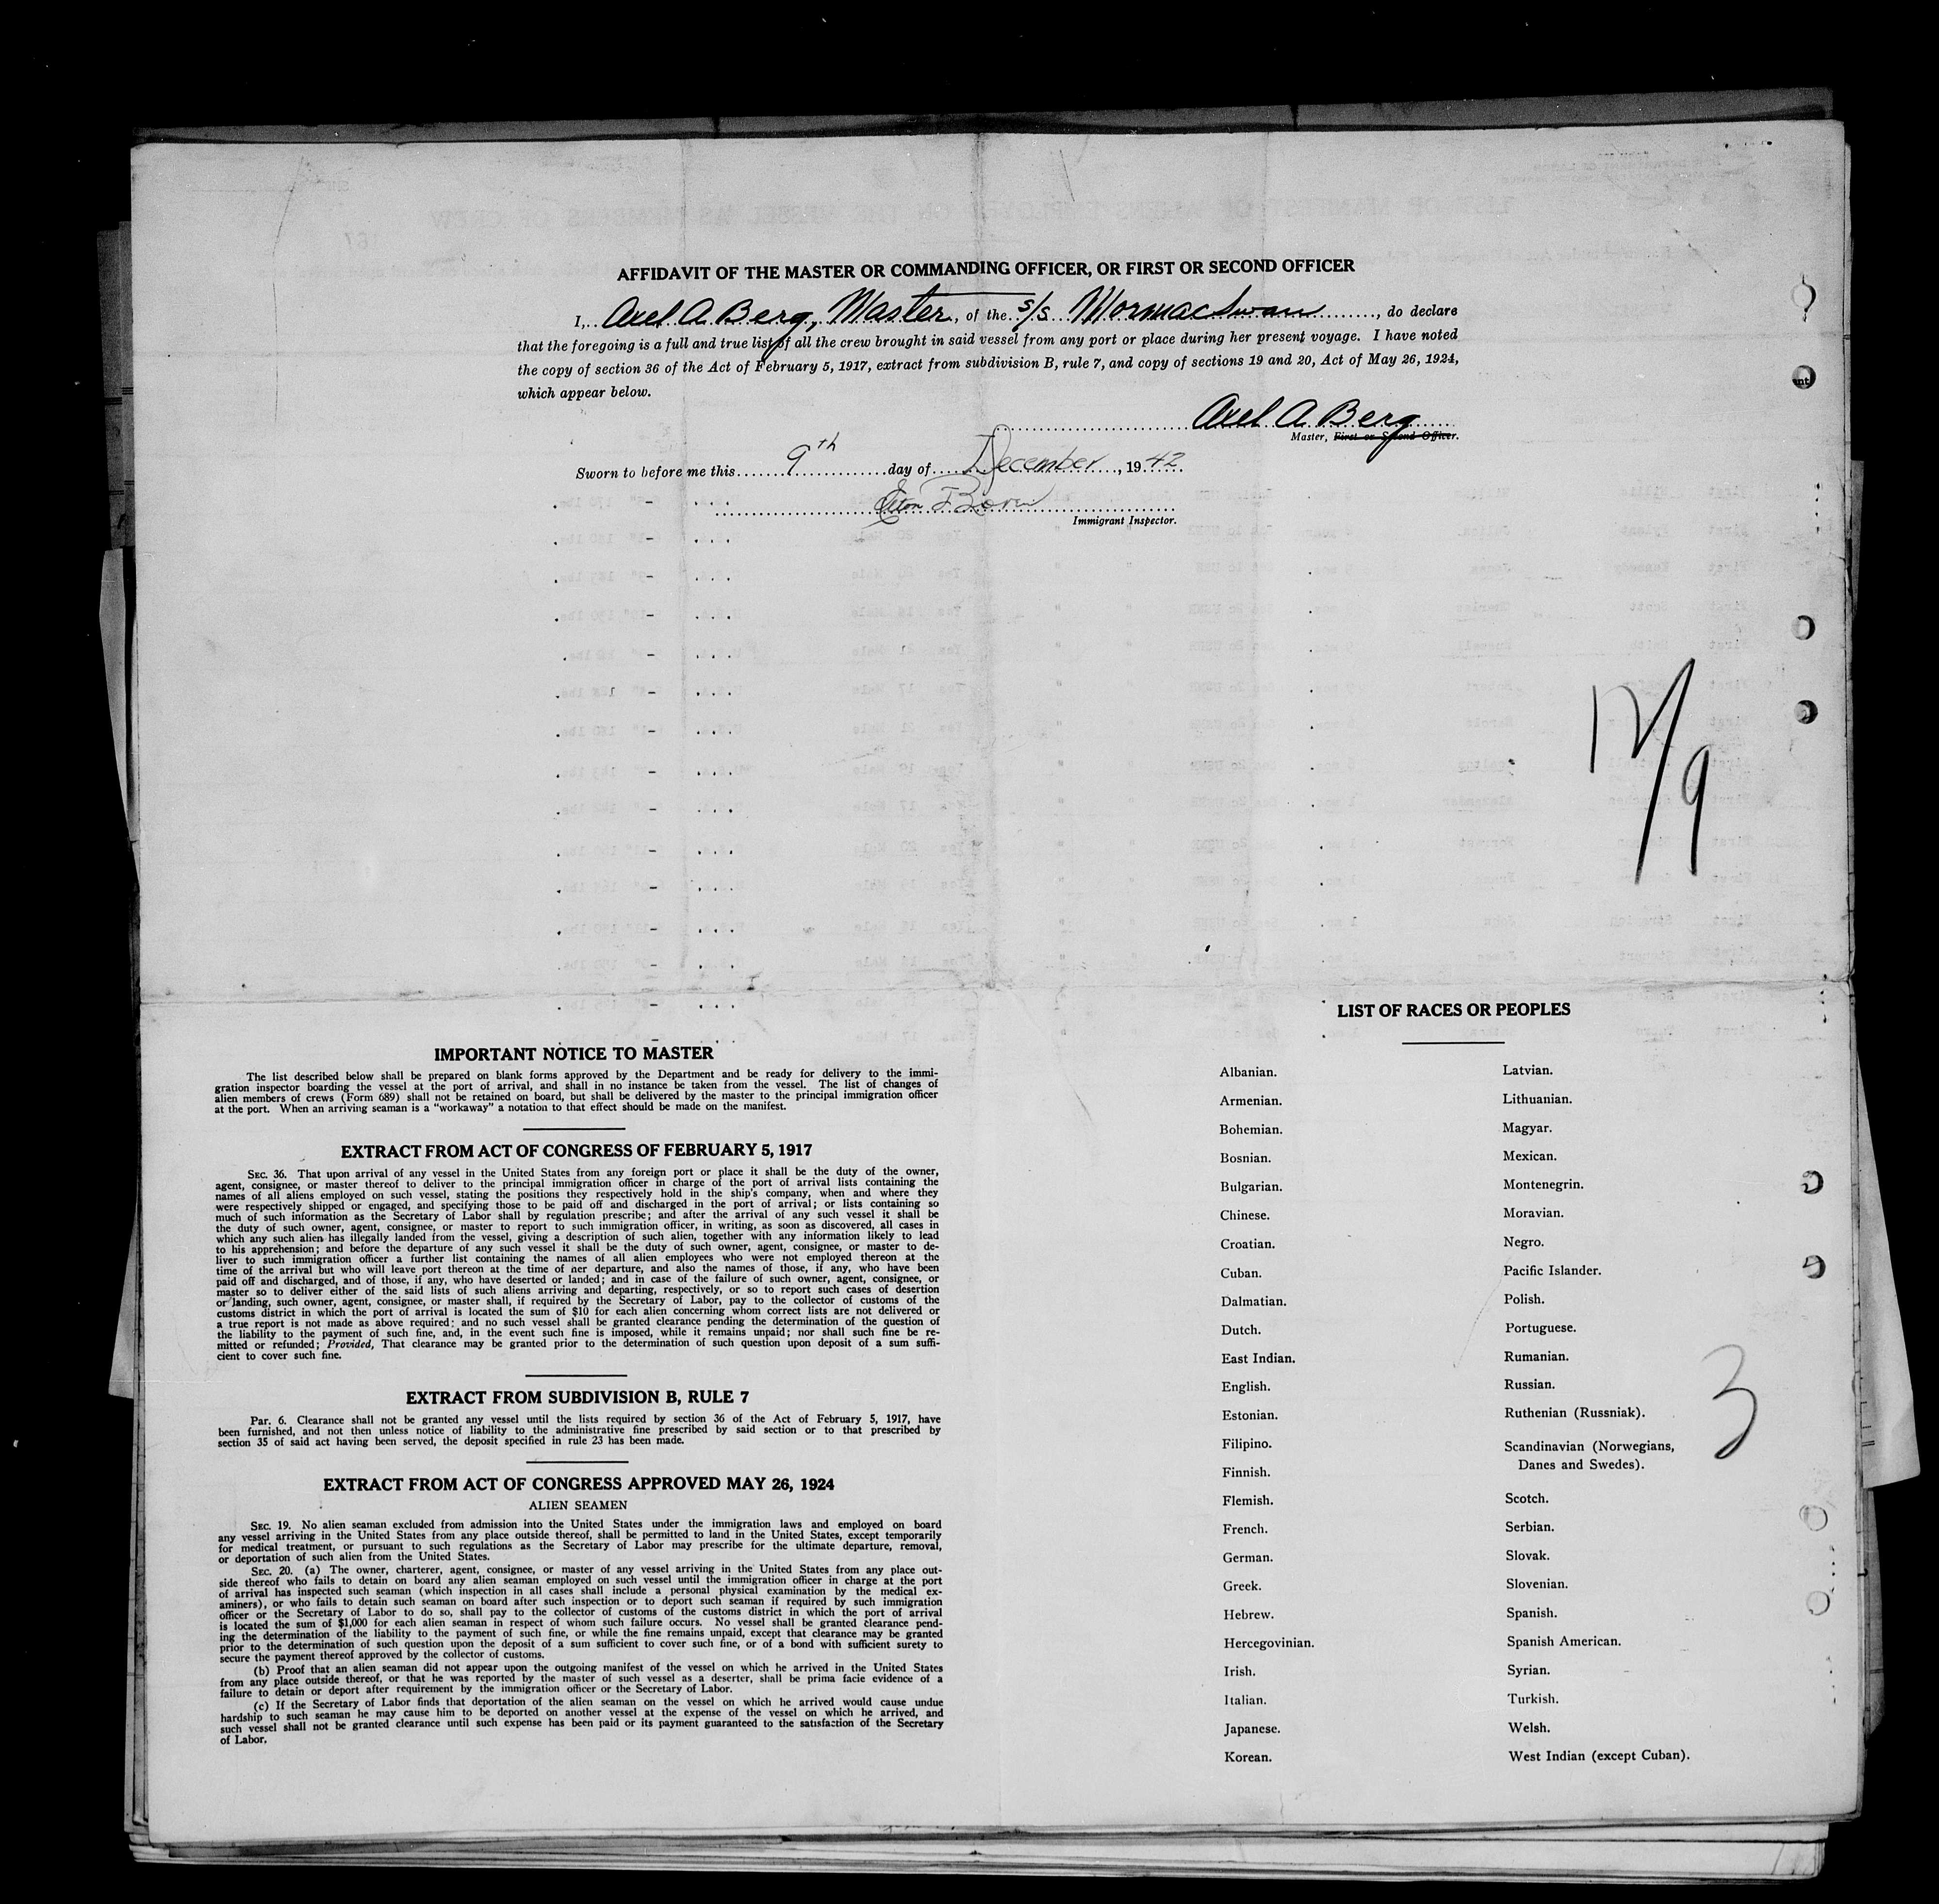 AFFIDAVIT OF THE MASTER OR COMMANDING OFFICER, OR FIRST OR SECOND OFFICER
I, Axel A Berg, Master, of the s/s Mormacswan, do declare
that the foregoing is a full and true list of all the crew brought in said vessel from any port or place during her present voyage. I have noted
the copy of section 36 of the Act of February 5, 1917, extract from subdivision B, rule 7, and copy of sections 19 and 20, Act of May 26, 1924,
which appear below.
Axel A Berg
Master, First or Second Officer.
Sworn to before me this 9th day of December, 1942
Immigrant Inspector.
12/9
IMPORTANT NOTICE TO MASTER
The list described below shall be prepared on blank forms approved by the Department and be ready for delivery to the immi-
gration inspector boarding the vessel at the port of arrival, and shall in no instance be taken from the vessel. The list of changes of
alien members of crews (Form 689) shall not be retained on board, but shall be delivered by the master to the principal immigration officer
at the port. When an arriving seaman is a "workaway" a notation to that effect should be made on the manifest.
EXTRACT FROM ACT OF CONGRESS OF FEBRUARY 5, 1917
SEC. 36. That upon arrival of any vessel in the United States from any foreign port or place it shall be the duty of the owner,
agent, consignee, or master thereof to deliver to the principal immigration officer in charge of the port of arrival lists containing the
names of all aliens employed on such vessel, stating the positions they respectively hold in the ship's company, when and where they
were respectively shipped or engaged, and specifying those to be paid off and discharged in the port of arrival; or lists containing so
much of such information as the Secretary of Labor shall by regulation prescribe; and after the arrival of any such vessel it shall be
the duty of such owner, agent, consignee, or master to report to such immigration officer, in writing, as soon as discovered, all cases in
which any such alien has illegally landed from the vessel, giving a description of such alien, together with any information likely to lead
to his apprehension; and before the departure of any such vessel it shall be the duty of such owner, agent, consignee, or master to de-
liver to such immigration officer a further list containing the names of all alien employees who were not employed thereon at the
time of the arrival but who will leave port thereon at the time of her departure, and also the names of those, if any, who have been
paid off and discharged, and of those, if any, who have deserted or landed; and in case of the failure of such owner, agent, consignee, or
master so to deliver either of the said lists of such aliens arriving and departing, respectively, or so to report such cases of desertion
or landing, such owner, agent, consignee, or master shall, if required by the Secretary of Labor, pay to the collector of customs of the
customs district in which the port of arrival is located the sum of $10 for each alien concerning whom correct lists are not delivered or
a true report is not made as above required; and no such vessel shall be granted clearance pending the determination of the question of
the liability to the payment of such fine, and, in the event such fine is imposed, while it remains unpaid; nor shall such fine be re-
mitted or refunded; Provided, That clearance may be granted prior to the determination of such question upon deposit of a sum suffi-
cient to cover such fine.
EXTRACT FROM SUBDIVISION B, RULE 7
Par. 6. Clearance shall not be granted any vessel until the lists required by section 36 of the Act of February 5, 1917, have
been furnished, and not then unless notice of liability to the administrative fine prescribed by said section or to that prescribed by
section 35 of said act having been served, the deposit specified in rule 23 has been made.
EXTRACT FROM ACT OF CONGRESS APPROVED MAY 26, 1924
ALIEN SEAMEN
SEC. 19. No alien seaman excluded from admission into the United States under the immigration laws and employed on board
any vessel arriving in the United States from any place outside thereof, shall be permitted to land in the United States, except temporarily
for medical treatment, or pursuant to such regulations as the Secretary of Labor may prescribe for the ultimate departure, removal,
or deportation of such alien from the United States.
SEC. 20. (a) The owner, charterer, agent, consignee, or master of any vessel arriving in the United States from any place out-
side thereof who fails to detain on board any alien seaman employed on such vessel until the immigration officer in charge at the port
of arrival has inspected such seaman (which inspection in all cases shall include a personal physical examination by the medical ex-
aminers), or who fails to detain such seaman on board after such inspection or to deport such seaman if required by such immigration
officer or the Secretary of Labor to do so, shall pay to the collector of customs of the customs district in which the port of arrival
is located the sum of $1,000 for each alien seaman in respect of whom such failure occurs. No vessel shall be granted clearance pend-
ing the determination of the liability to the payment of such fine, or while the fine remains unpaid, except that clearance may be granted
prior to the determination of such question upon the deposit of a sum sufficient to cover such fine, or of a bond with sufficient surety to
secure the payment thereof approved by the collector of customs.
(b) Proof that an alien seaman did not appear upon the outgoing manifest of the vessel on which he arrived in the United States
from any place outside thereof, or that he was reported by the master of such vessel as a deserter, shall be prima facie evidence of a
failure to detain or deport after requirement by the immigration officer or the Secretary of Labor.
(c) If the Secretary of Labor finds that deportation of the alien seaman on the vessel on which he arrived would cause undue
hardship to such seaman he may cause him to be deported on another vessel at the expense of the vessel on which he arrived, and
such vessel shall not be granted clearance until such expense has been paid or its payment guaranteed to the satisfaction of the Secretary
of Labor.
LIST OF RACES OR PEOPLES
Albanian.
Armenian.
Bohemian.
Bosnian.
Bulgarian.
Chinese.
Croatian.
Cuban.
Dalmatian.
Dutch.
East Indian.
English.
Estonian.
Filipino.
Finnish.
Flemish.
French.
German.
Greek.
Hebrew.
Hercegovinian.
Irish.
Italian.
Japanese.
Korean.
Latvian.
Lithuanian.
Magyar.
Mexican.
Montenegrin.
Moravian.
Negro.
Pacific Islander.
Polish.
Portuguese.
Rumanian.
Russian.
Ruthenian (Russniak).
Scandinavian (Norwegians,
Danes and Swedes).
Scotch.
Serbian.
Slovak.
Slovenian.
Spanish.
Spanish American.
Syrian.
Turkish.
Welsh.
West Indian (except Cuban).
3